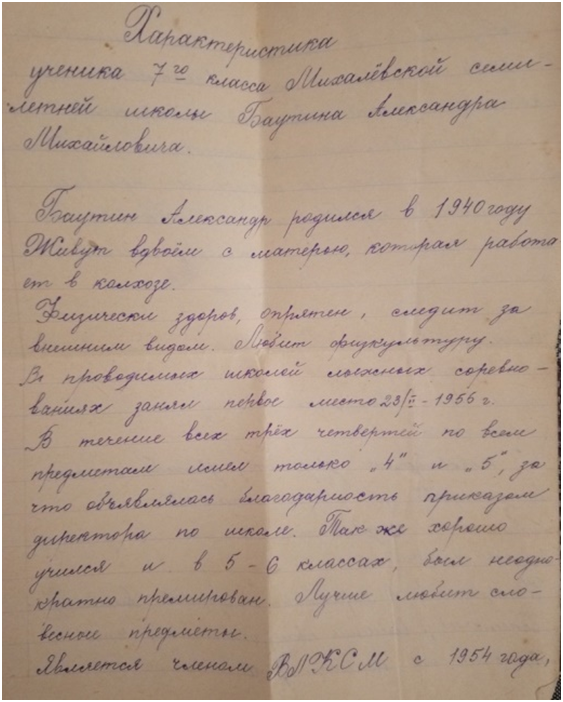 Характеристика
ученика 7го класса Михалёвской семи-
летней школы Баутина Александра
Михайловича.
Баутин Александр родился в 1940 году
Живут вдвоём с матерью, которая работа
ет в колхозе.
Физически здоров, опрятен, следит за
внешним видом. Любит физкультуру.
В проводимых школой лыжных соревно-
ваниях занял первое место 23/II-1956 г.
В течение всех трёх четвертей по всем
предметам имел только „4" и „5", за
что объявлялась благодарность приказом
директора по школе. Так же хорошо
учился и в 5-6 классах, был неодно-
кратно премирован. Лучше любит сло-
весные предметы.
Является членом ВЛКСМ с 1954 года,